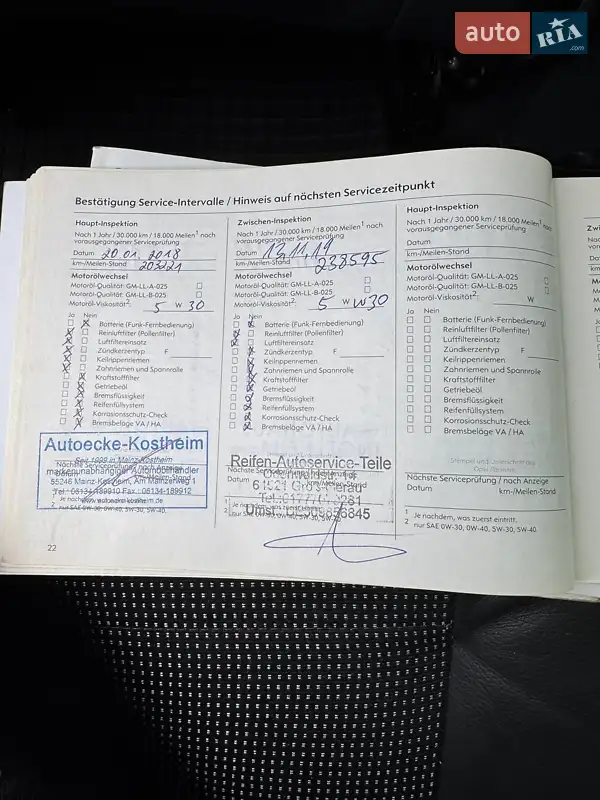 auto RIA .com
Bestätigung Service-Intervalle / Hinweis auf nächsten Servicezeitpunkt
Haupt-Inspektion
Nach 1 Jahr / 30.000 km / 18.000 Meilen1 nach
vorausgegangener Serviceprüfung
Datum 20.01.2018
km-/Meilen-Stand 203221
Motorölwechsel
Motoröl-Qualität: GM-LL-A-025
Motoröl-Qualität: GM-LL-B-025
Motoröl-Viskosität2: 5 W 30
Ja Nein
Batterie (Funk-Fernbedienung)
Reinluftfilter (Pollenfilter)
Luftfiltereinsatz
Zündkerzentyp F
Keilrippenriemen
Zahnriemen und Spannrolle
Kraftstofffilter
Getriebeöl
Bremsflüssigkeit
Reifenfüllsystem
Korrosionsschutz-Check
Bremsbeläge VA / HA
Autoecke-Kostheim
Seit 1999 in Mainz-Kostheim
Nächste Serviceprüfung / nach Anzeige
markenunabhängiger Automobilhändler
Datum
55246 Mainz-Kostheim, Am Mainzerweg 1
Tel.: 06134-189910 Fax.: 06134-189912
www.autoecke-kostheim.de
1 Je nachdem, was zuerst eintritt.
2 nur SAE 0W-30, 0W-40, 5W-30, 5W-40.
22
Zwischen-Inspektion
Nach 1 Jahr / 30.000 km / 18.000 Meilen1 nach
vorausgegangener Serviceprüfung
Datum 13.11.19
km-/Meilen-Stand 238595
Motorölwechsel
Motoröl-Qualität: GM-LL-A-025
Motoröl-Qualität: GM-LL-B-025
Motoröl-Viskosität2: 5 W W30
Ja Nein
Batterie (Funk-Fernbedienung)
Reinluftfilter (Pollenfilter)
Luftfiltereinsatz
Zündkerzentyp F
Keilrippenriemen
Zahnriemen und Spannrolle
Kraftstofffilter
Getriebeöl
Bremsflüssigkeit
Reifenfüllsystem
Korrosionsschutz-Check
Bremsbeläge VA / HA
Reifen-Autoservice-Teile
Nächste Serviceprüfung / nach Anzeige
Datum km-/Meilen-Stand
1 Je nachdem, was zuerst
2 nur SAE 0W-30, 0W-40, 5W-30, 5W-40.
Haupt-Inspektion
Nach 1 Jahr / 30.000 km / 18.000 Meilen1 nach
vorausgegangener Serviceprüfung
Datum
km-/Meilen-Stand
Motorölwechsel
Motoröl-Qualität: GM-LL-A-025
Motoröl-Qualität: GM-LL-B-025
Motoröl-Viskosität2: W
Ja Nein
Batterie (Funk-Fernbedienung)
Reinluftfilter (Pollenfilter)
Luftfiltereinsatz
Zündkerzentyp F
Keilrippenriemen
Zahnriemen und Spannrolle
Kraftstofffilter
Getriebeöl
Bremsflüssigkeit
Reifenfüllsystem
Korrosionsschutz-Check
Bremsbeläge VA / HA
Stempel und Unterschrift
Opel Partner
Nächste Serviceprüfung / nach Anzeige
Datum km-/Meilen-Stand
1 Je nachdem, was zuerst eintritt.
2 nur SAE 0W-30, 0W-40, 5W-30, 5W-40.